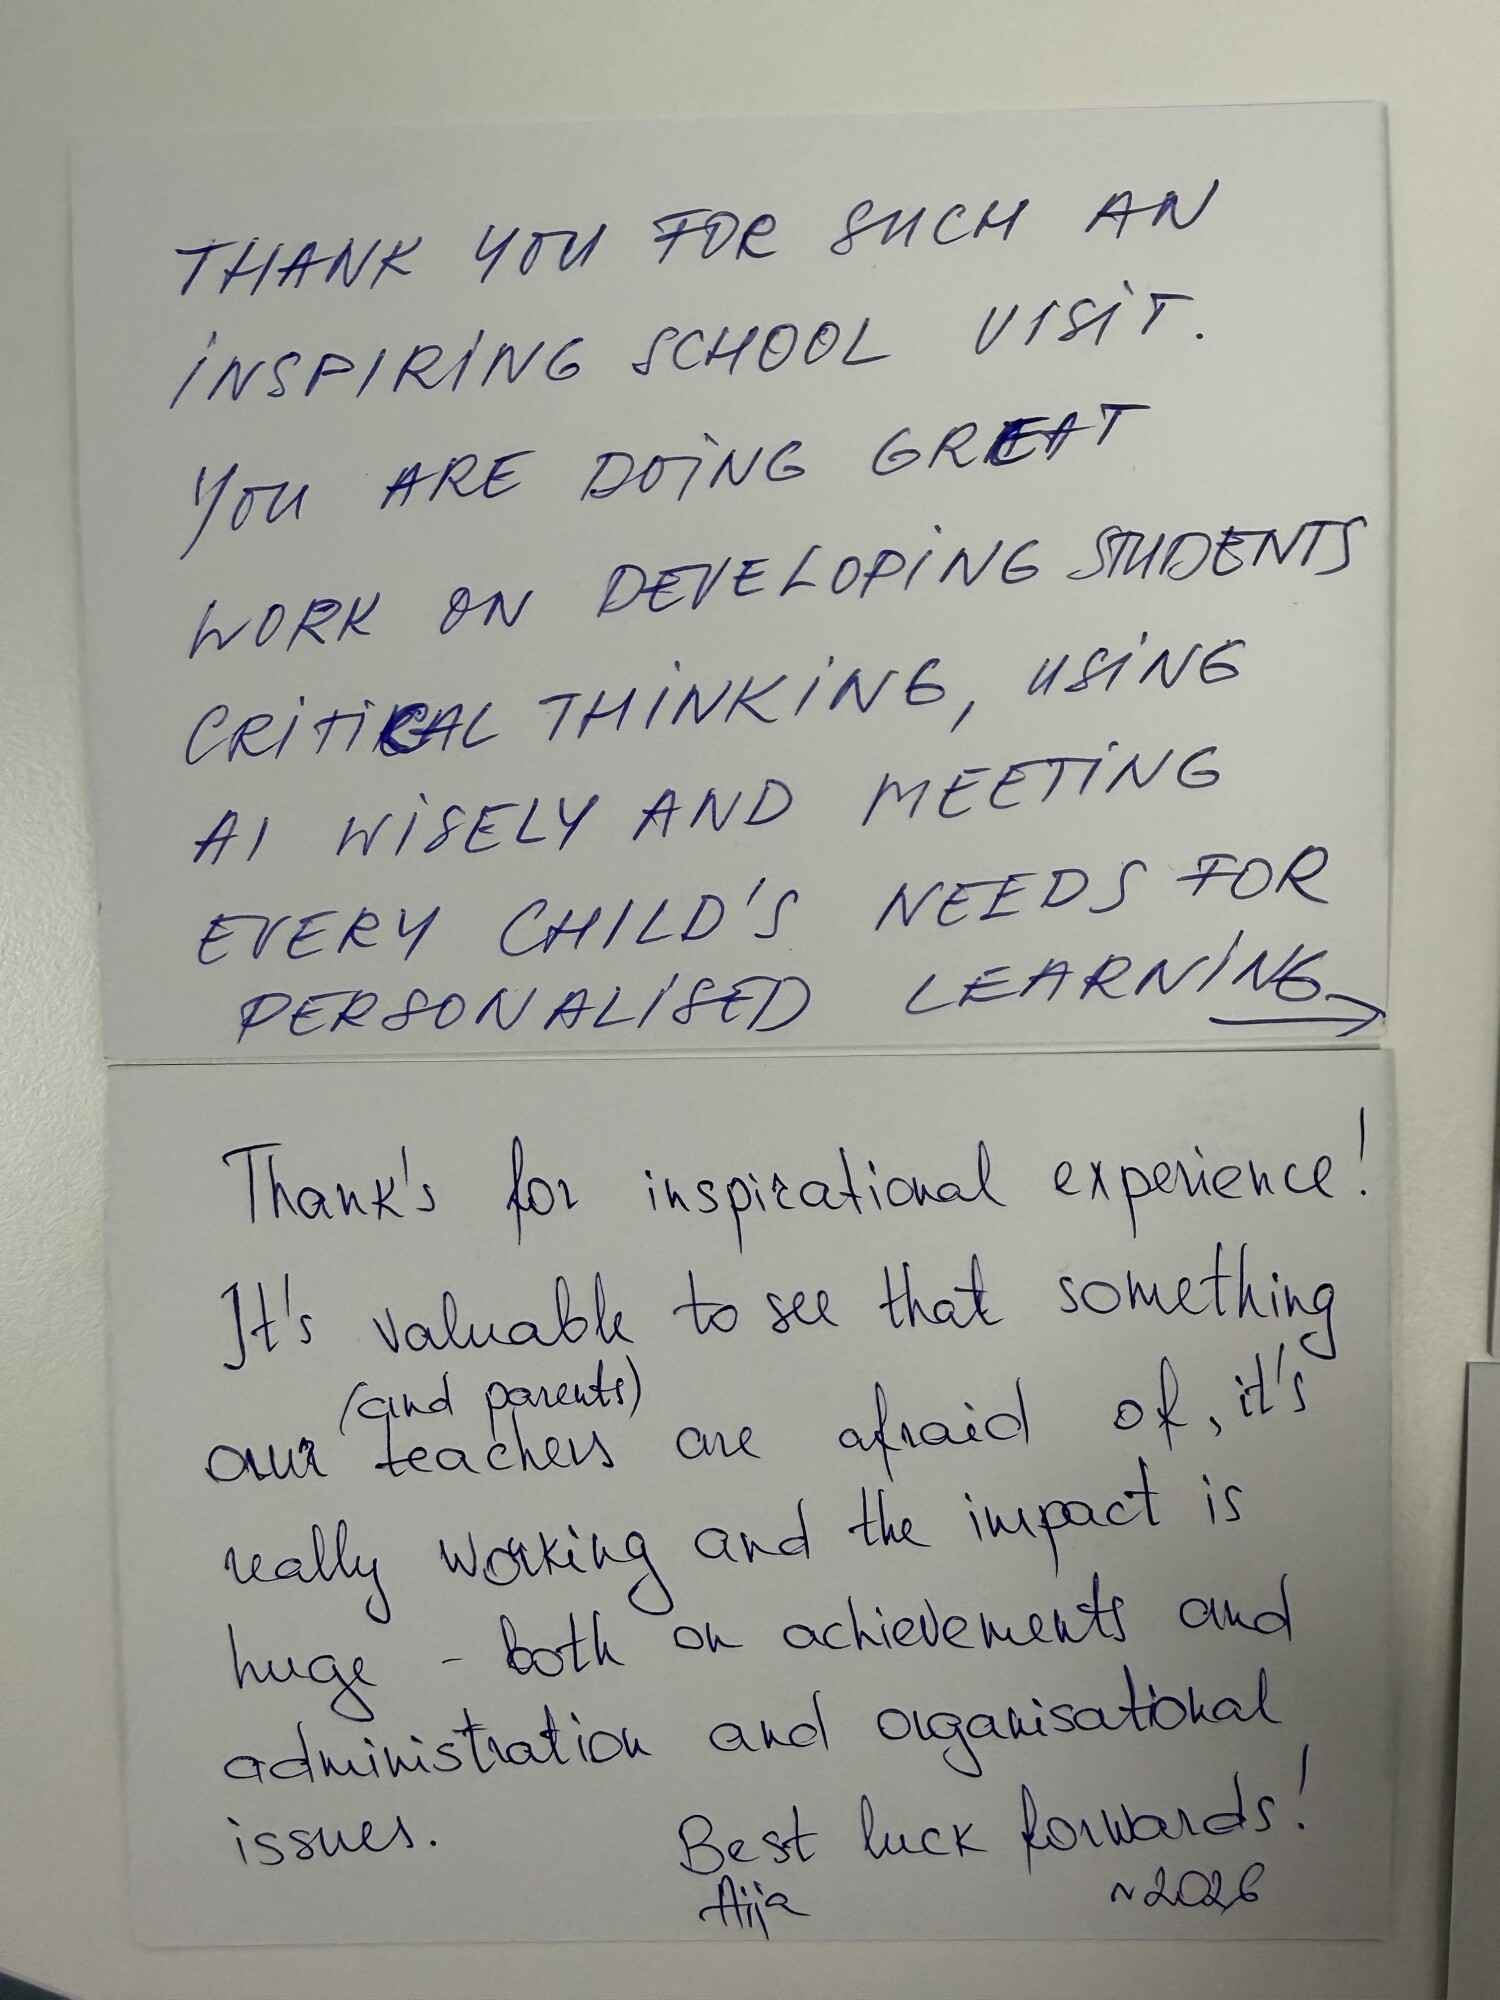 THANK YOU FOR SUCH AN
INSPIRING SCHOOL VISIT.
YOU ARE DOING GREAT
WORK ON DEVELOPING STUDENTS
CRITICAL THINKING, USING
AI WISELY AND MEETING
EVERY CHILD'S NEEDS FOR
PERSONALISED LEARNING →
Thank's for inspirational experience!
It's valuable to see that something
(and parents)
our teachers are afraid of, it's
really working and the impact is
huge - both on achievements and
administration and organisational
issues. Best luck forwards!
Aija ~2026